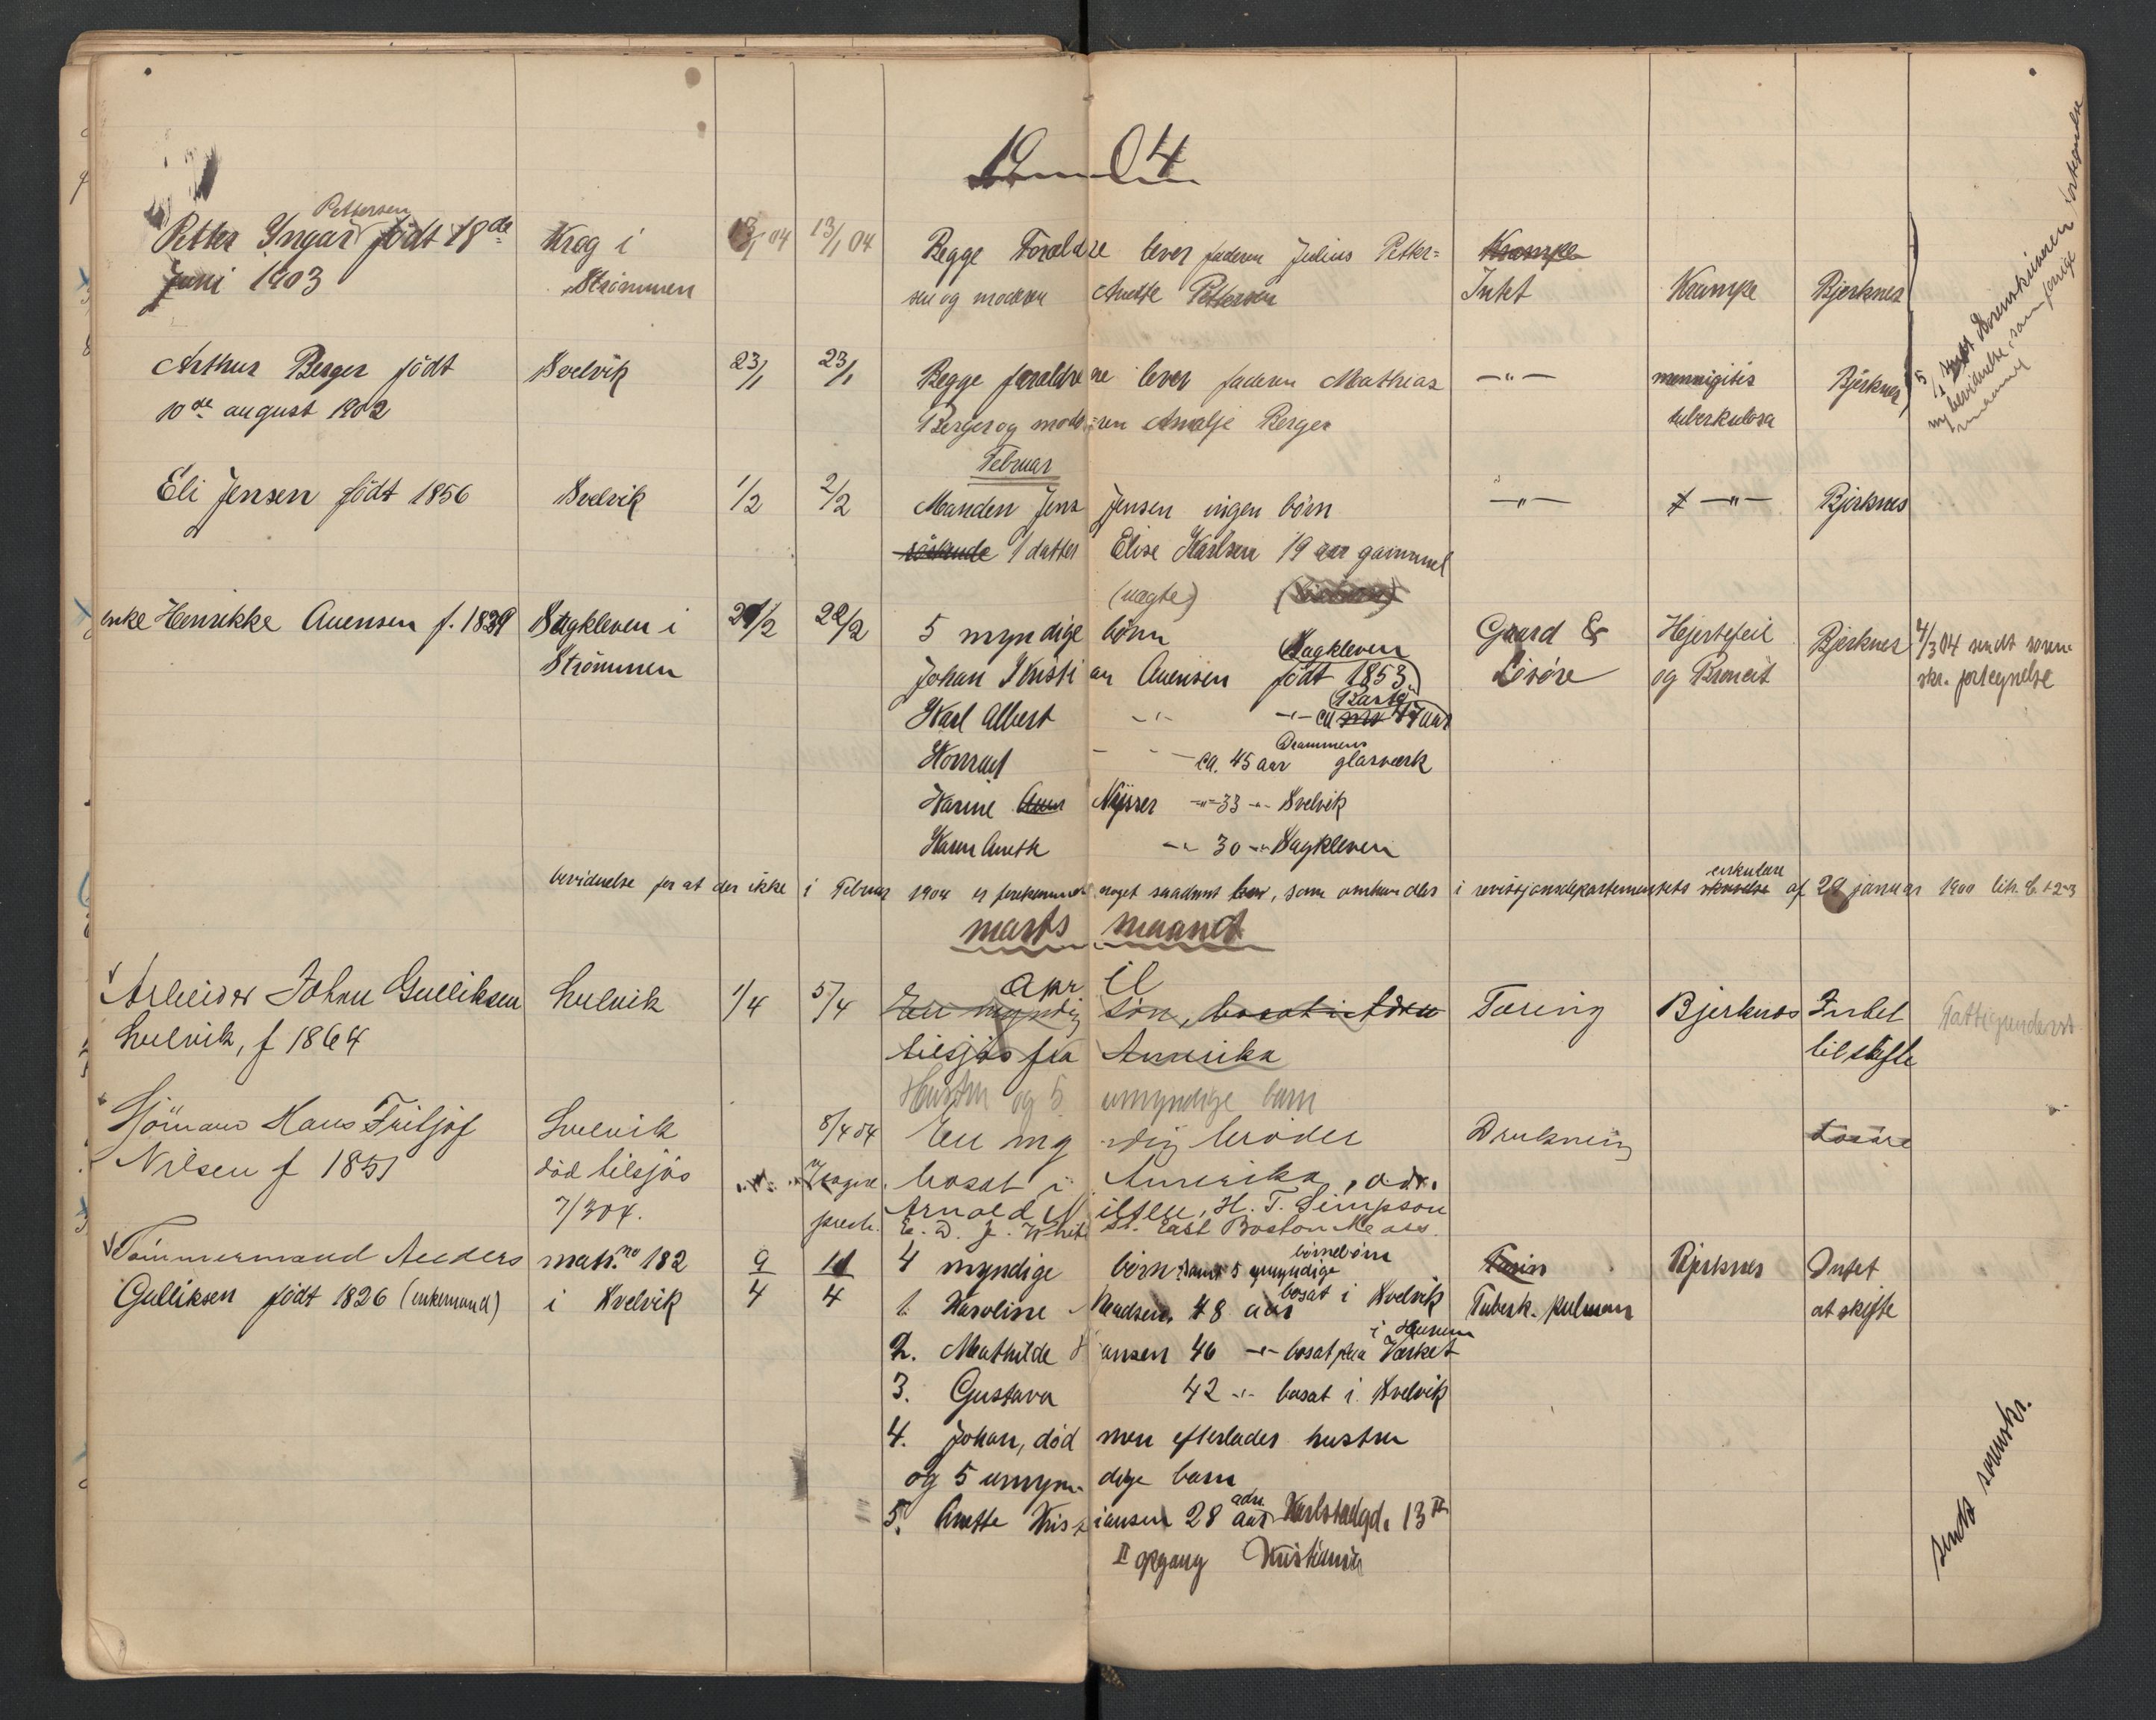 1904
Pettersen
Petter Yngar født 18de Krog i 13/1 04 13/1 04 Begge Foræeldre lever faderen Julius Petter= Krampe
Juni 1903 Strømmen sen og moderen Anette Pettersen Intet Krampe Bjerknes
Arthur Berger født Svelvik 23/1 23/1 Begge forældrene lever faderen Mathias —„— mennigitis Bjerknes
10de august 1902 Berger og mode=ren Amalje Berger tuberkulosa
5/2 sendt Sorenskriveren fortegnelse
ny bevidnelse, som forrige
maaned
Februar
Eli Jensen født 1856 Svelvik 1/2 2/2 Manden Jens Jensen ingen børn —„— —„— Bjerknes
søskende 1 datter Elise Karlsen 19 aar gammel
(uægte)
enke Henrikke Auensen f. 1839 Sagkleven i 21/2 22/2 5 myndige børn Gaard & Hjertefeil Bjerknes 4/3 04 sendt soren
Strømmen Johan Kristian Auensen født 1853 Sagkleven Løsøre og Broncit skr. fortegnelse
Karl Albert —„— —„— ca 47 aar
Konrad — „ — ca. 45 aar Drammens glasværk
Karine Auen Nysser —„— 33 —„— Svelvik
Karen Anette —„— 30 —„— Sagkleven
bevidnelse for at der ikke i Februar 1904 er forekommet noget saadant , som omhandler i revisjonsdepartementets skrivelse cirkulære af 29 januar 1900 litr. b. 1-2-3
marts maaned
April
Arbeider Johan Gulliksen Svelvik 1/4 5/4 En myndig søn, bosat i Tæring Bjerknes Intet Fattigunderst
Svelvik, f 1864 tilsjøs fra Amerika til skifte
Hustru og 5 umyndige barn
Sjömand Hans Fritjof Svelvik 8/4 04 En myndig broder Drukning Løsöre
Nilsen f 1851 død tilsjøs bosat i Amerika, adr.
7/3 04. Arnold Nilsen, H. T. Simpson
E. D. J. White St. East Boston Mass.
Tømmermand Anders matr. no 182 9/4 11/4 4 myndige børn samt 5 umyndige børnebørn Tærin Bjerknes Intet
Gulliksen født 1826 (enkemand) i Svelvik 1. Karoline Madsen 48 aar bosat i Svelvik Tuberk. pulmon at skifte
2. Mathilde Hansen 46 —„— bosat paa Værket i Hurum
3. Gustava 42 —„— bosat i Svelvik
4. Johan, død men efterlader hustru
og 5 umyndige barn
5. Anette Kristiansen 28 aar adr. Karlstadgd. 13 II
II opgang Kristiania
sendt sorenskr.